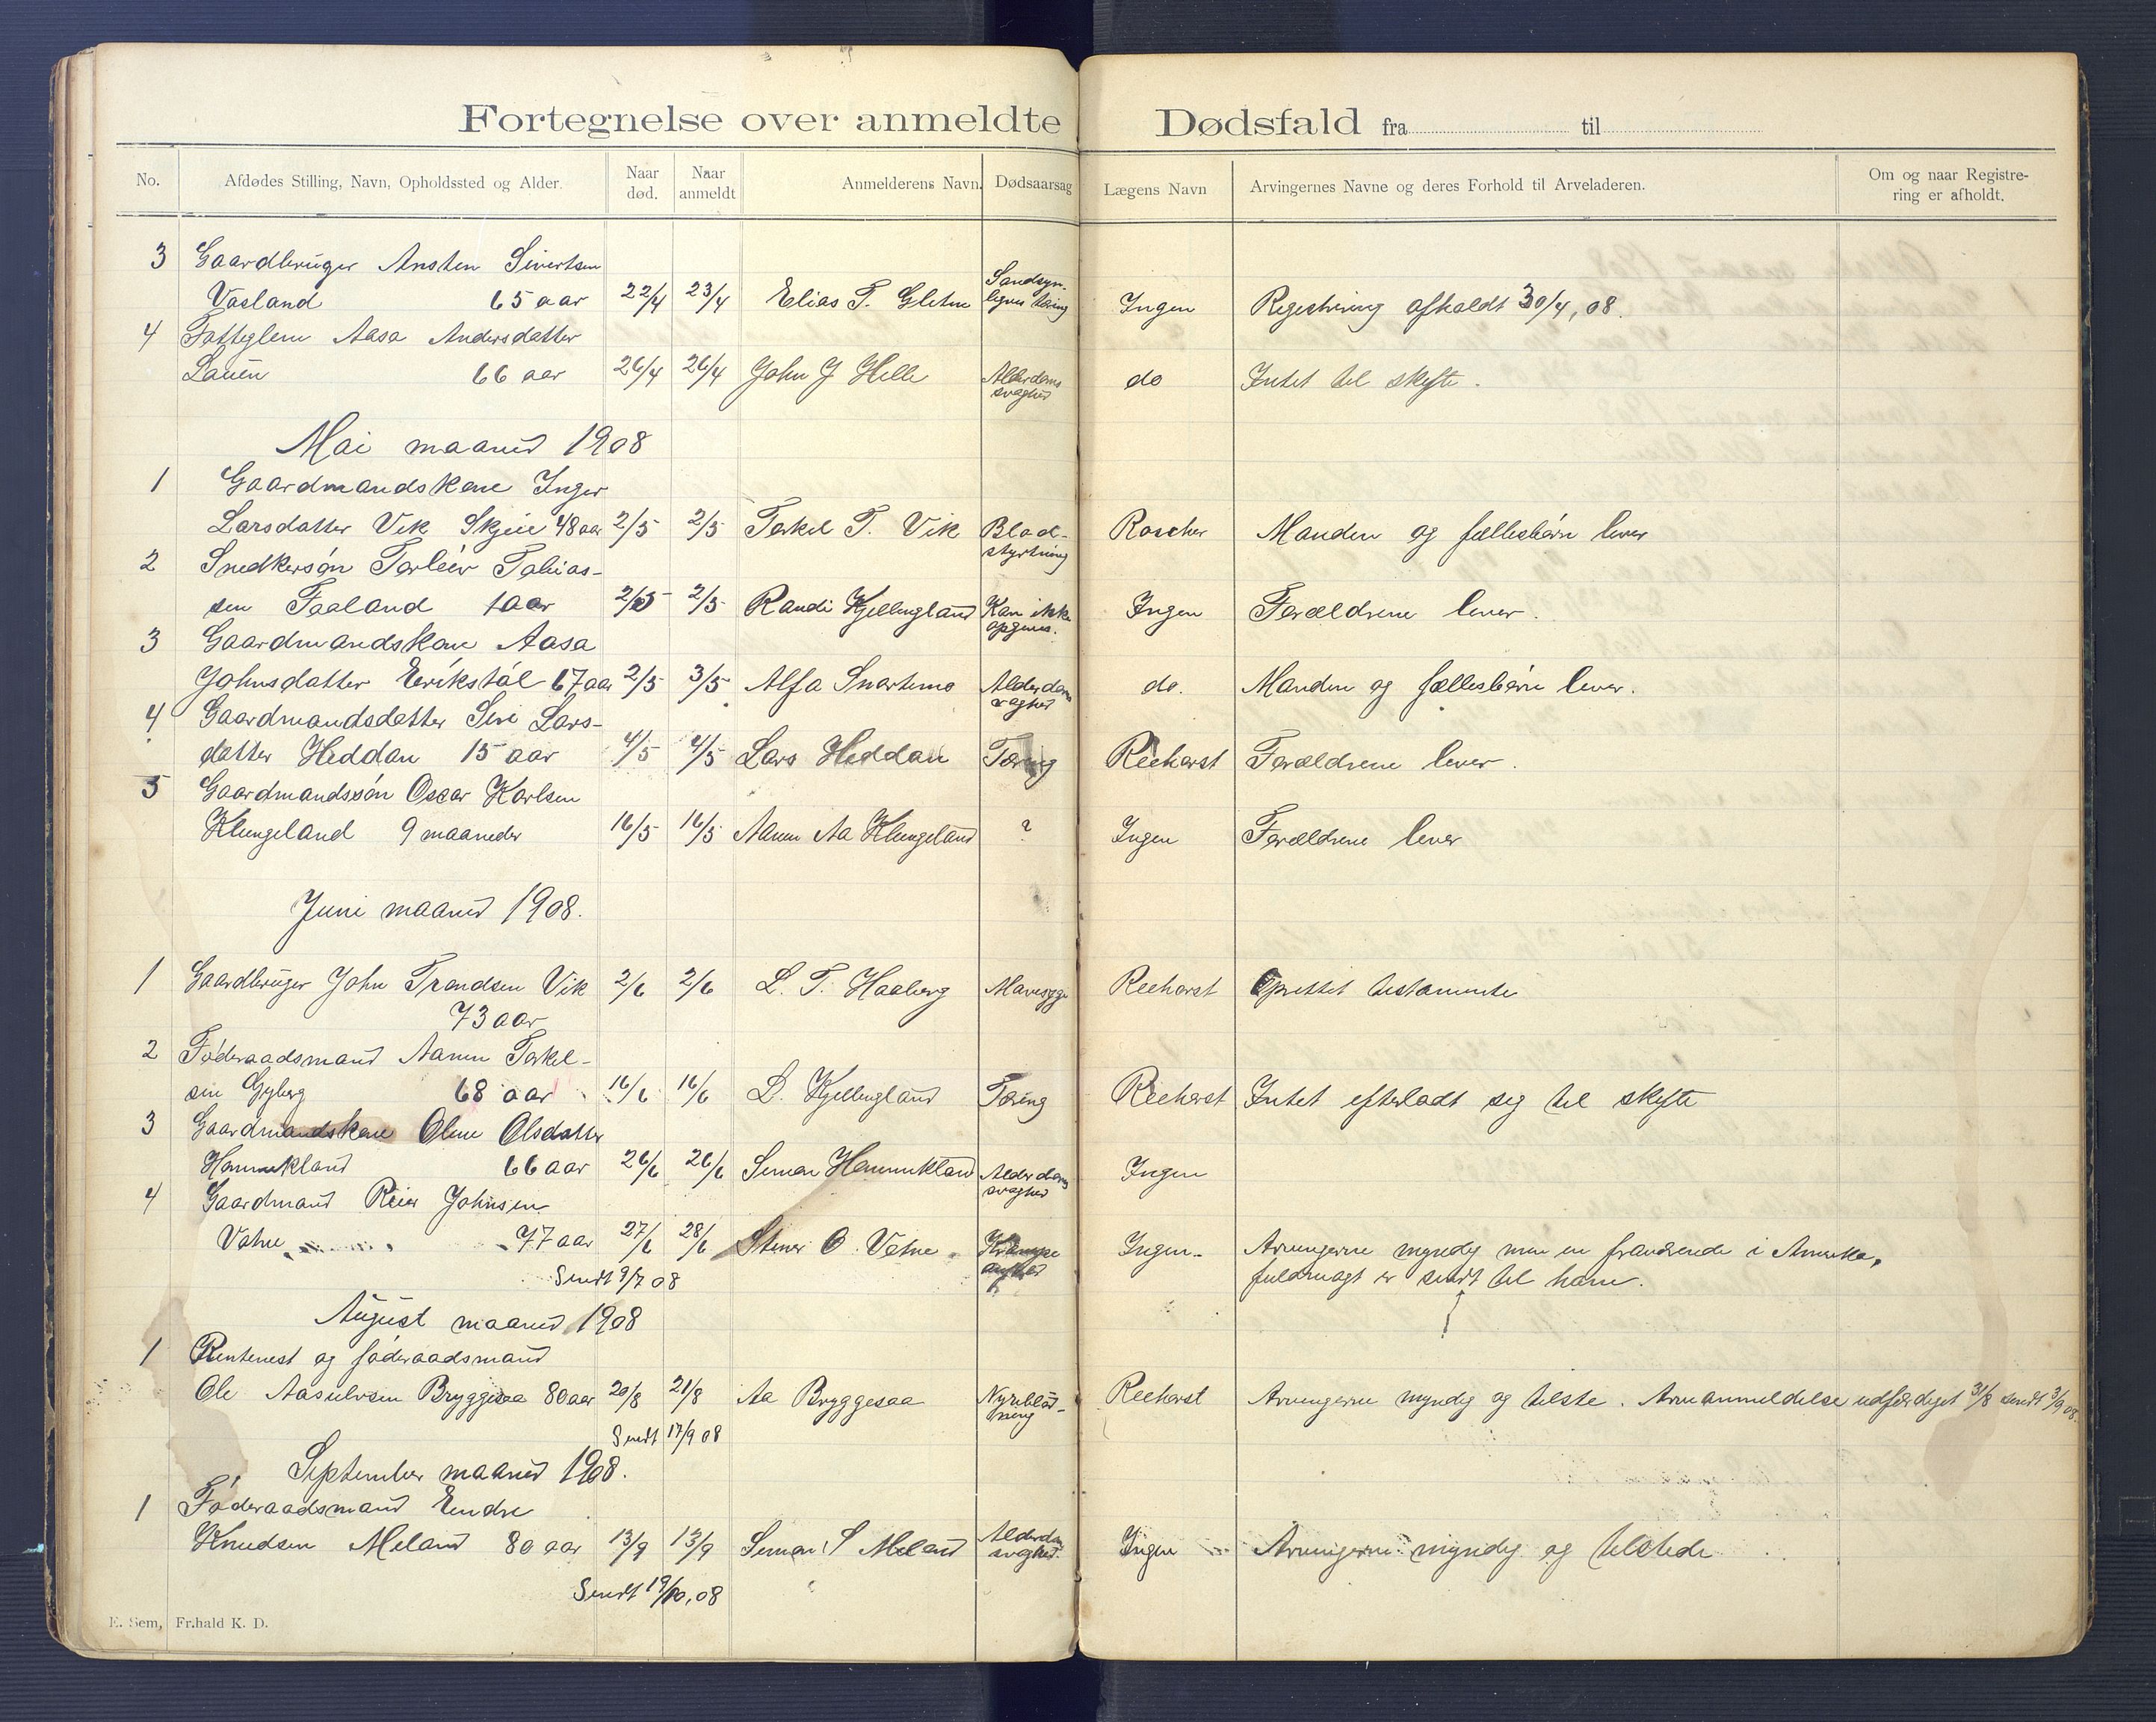 Fortegnelse over anmeldte Dødsfald fra til
No. Afdødes Stilling, Navn, Opholdssted og Alder. Naar død. Naar anmeldt Anmelderens Navn. Dødsaarsag Lægens Navn Arvingernes Navne og deres Forhold til Arveladeren. Om og naar Registrering er afholdt.
3 Gaardbruger Ansten Sivertsen
Vasland 65 aar 22/4 23/4 Elias T. Sandsyn-
ligvis tæring Ingen Regestrering afholdt 30/4, 08.
4 Fatteglem Aasa Andersdatter
Lauen 66 aar 26/4 26/4 John J Helle Alderdoms
svaghed do Intet til skifte.
Mai maaned 1908
1 Gaardmandskone Inger
Larsdatter Vik Skjeie 48 aar 2/5 2/5 Torkel T. Vik Blod-
styrtning Roscher Manden og fællesbørn lever
2 Snedkersøn Torleiv Tobias-
sen Faaland 1 aar 2/5 2/5 Randi Kjellingland Kan ikke
opgives. Ingen Forældrene lever.
3 Gaardmandskone Aasa
Johnsdatter Erikstøl 67 aar 2/5 3/5 Alfa Snartemo Alderdoms
svaghed do. Manden og fællesbørn lever.
4 Gaardmandsdatter Siri Lars-
datter Heddan 15 aar 4/5 4/5 Lars Heddan Tæring Reehorst Forældrene lever.
5 Gaardmandssøn Oscar Karlsen
Klungeland 9 maaneder 16/5 16/5 Aanen Aa Klungeland ? Ingen Forældrene lever
Juni maaned 1908.
1 Gaardbruger John Trondsen Vik 2/6 2/6 L. T. Haaberg Mavesyge Reehorst Oprettet testamente
73 aar
2 Føderaadsmand Aanen Torkel-
sen Gyberg 68 aar 16/6 16/6 D. Kjellingland Tæring Reehorst Intet efterladt sig til skifte
3 Gaardmandskone Oline Olsdatter
Hommekland 66 aar 26/6 26/6 Simon Hommekland Alderdoms
svaghed Ingen
4 Gaardmand Reier Johnsen
Vatne 77 aar 27/6 28/6 Stener O. Vatne Krampe
Ingen Arvingerne myndig men en fraværende i Amerika,
fuldmagt er sendt til ham.
Sendt 9/7 08
August maaned 1908
1 Rentenest og føderaadsmand
Ole Aasulvsen Bryggesaa 80 aar 20/8 21/8 Aa Bryggesaa Nyreblød-
ning Reehorst Arvingerne myndig og tilste. Arveanmeldelse udfærdiget 31/8 sendt 3/9 08.
Sendt 17/9 08
September maaned 1908.
1 Føderaadsmand Endre
Knudsen Meland 80 aar 13/9 13/9 Simon S Meland Alderdoms
svaghed. Ingen Arvingerne myndig og tilstede
Sendt 19/10, 08
E. Sem, Fr.hald K. D.